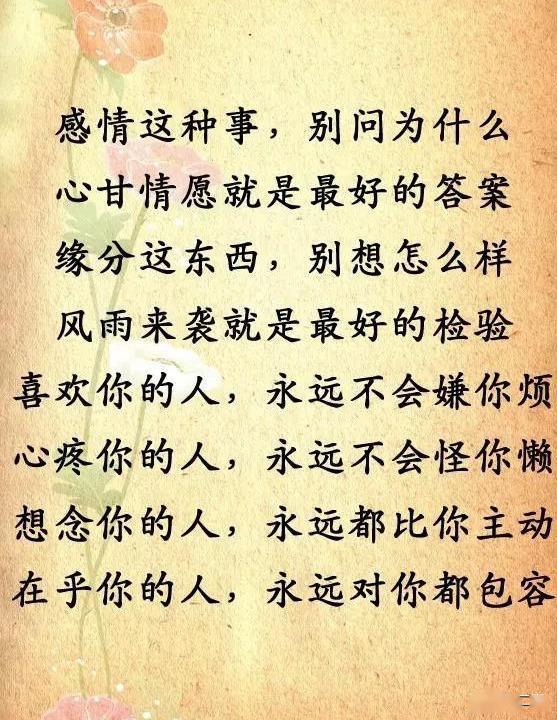 感情这种事，别问为什么
心甘情愿就是最好的答案
缘分这东西，别想怎么样
风雨来袭就是最好的检验
喜欢你的人，永远不会嫌你烦
心疼你的人，永远不会怪你懒
想念你的人，永远都比你主动
在乎你的人，永远对你都包容